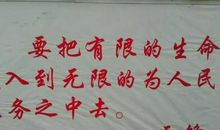 要把有限的生命
入到无限的为人民
务之中去。